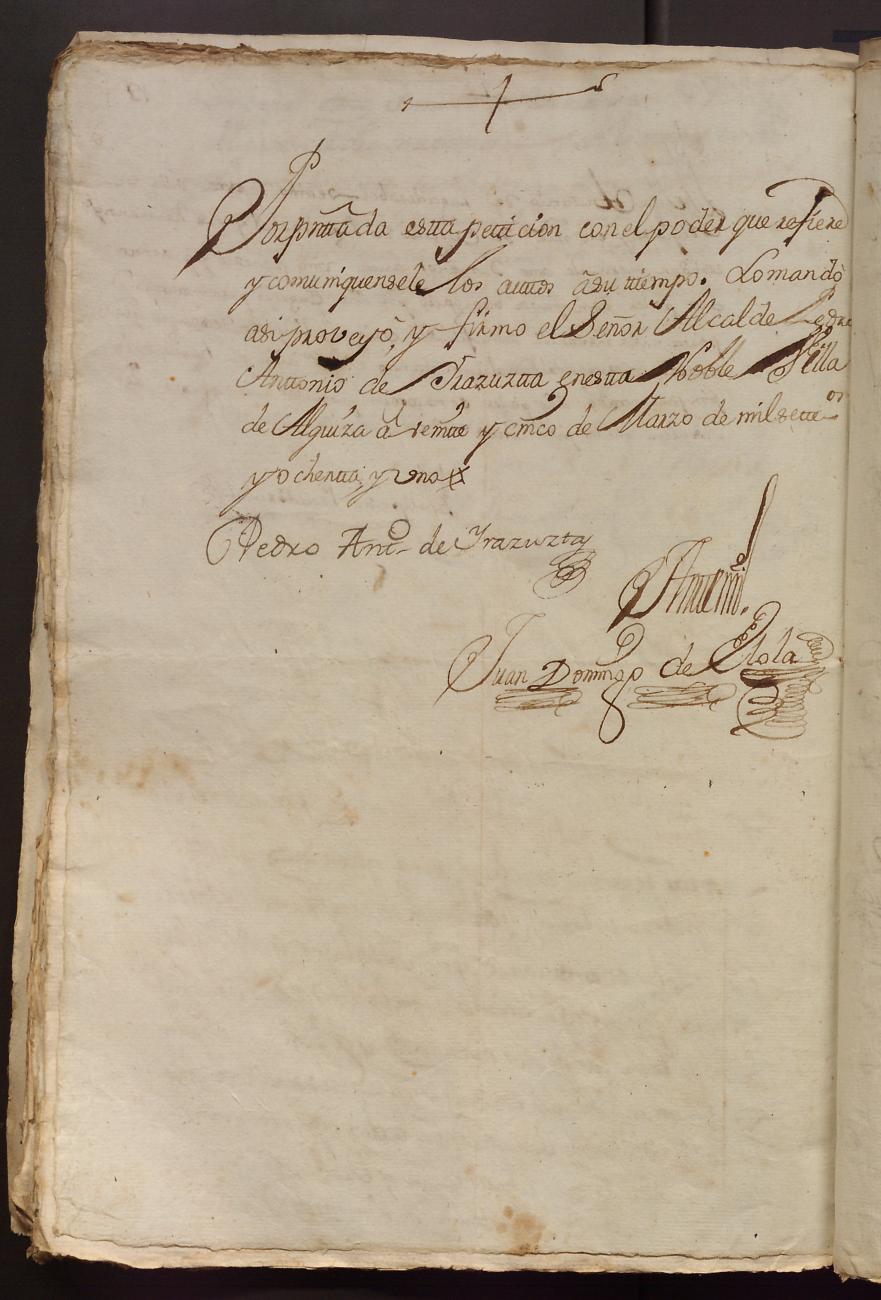 Por prnttada estta pettición con el poder que refiere
y comuniquensele los auttos à su ttiempo. Lo mandò
asi proveyò, y firmo el Señor Alcalde Pedro
Anttonio de Yrazuztta en estta Noble Villa
de Alquiza à veintte y cinco de Marzo de mil settecos
y ochentta, y uno
Pedro Antº de Yrazuzta
Antemi.
Juan Domingo de Elola